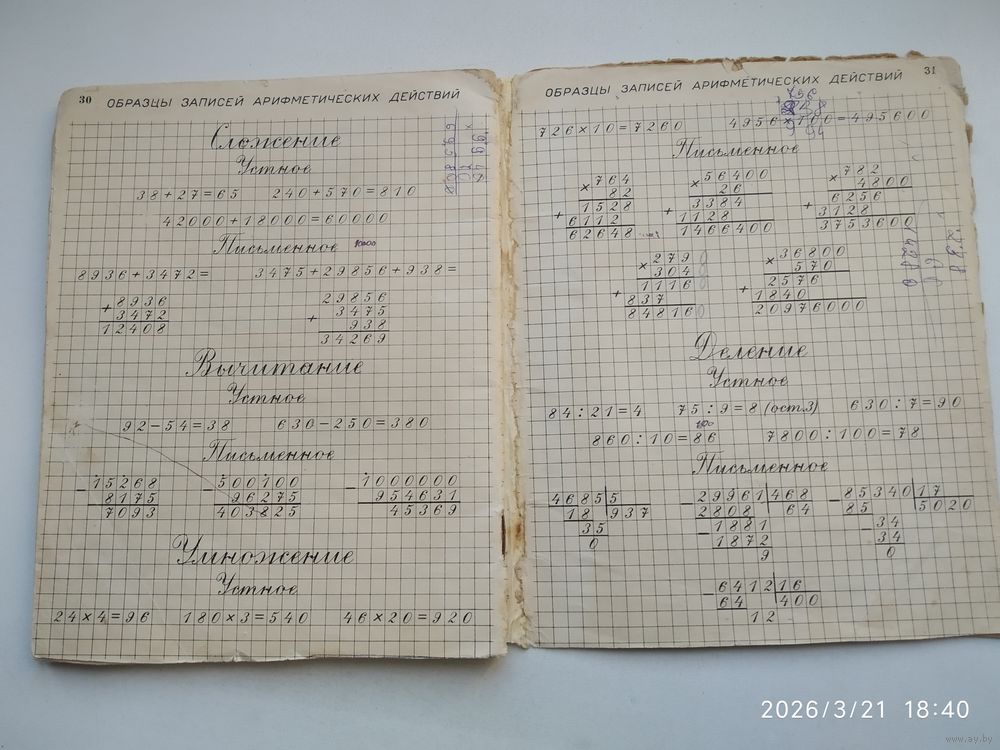 30 ОБРАЗЦЫ ЗАПИСЕЙ АРИФМЕТИЧЕСКИХ ДЕЙСТВИЙ
Сложение
Устное
38+27=65 240+570=810
42000+18000=60000
Письменное
8936+3472= 3475+29856+938=
+ 8936
3472
12408
29856
+ 3475
938
34269
Вычитание
Устное
92-54=38 630-250=380
Письменное
- 15268
8175
7093
- 500100
96275
403825
- 1000000
954631
45369
Умножение
Устное
24×4=96 180×3=540 46×20=920
ОБРАЗЦЫ ЗАПИСЕЙ АРИФМЕТИЧЕСКИХ ДЕЙСТВИЙ 31
726×10=7260 4956×100=495600
Письменное
× 764
82
+ 1528
6112
62648
× 56400
26
+ 3384
1128
1466400
× 782
4800
+ 6256
3128
3753600
× 279
304
+ 1116
837
84816
× 36800
570
+ 2576
1840
20976000
Деление
Устное
84:21=4 75:9=8 (ост.3) 630:7=90
860:10=86 7800:100=78
Письменное
4685 5
18 937
35
0
- 29961 468
2808 64
- 1881
1872
9
- 85340 17
85 5020
- 34
34
0
- 6412 16
64 400
12
2026/3/21 18:40
www.ay.by